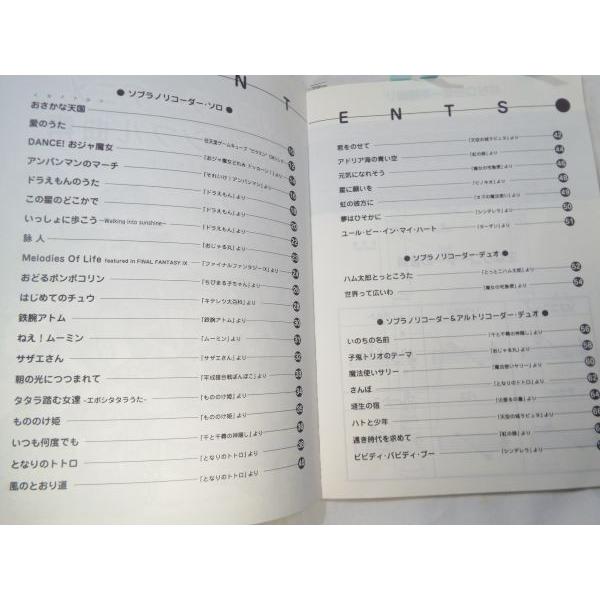 NT
● ソプラノリコーダー・ソロ ●
おさかな天国
愛のうた 任天堂ゲームキューブ
DANCE! おジャ魔女 「おジャ魔女どれみ ドッカ〜ン!」より
アンパンマンのマーチ 「それいけ!アンパンマン」より
ドラえもんのうた 「ドラえもん」より
この星のどこかで 「ドラえもん」より
いっしょに歩こう ~Walking into sunshine~ 「ドラえもん」より
詠人 「おじゃる丸」より
Melodies Of Life featured in FINAL FANTASY IX 「ファイナルファンタジーIX」より
おどるポンポコリン 「ちびまる子ちゃん」より
はじめてのチュウ 「キテレツ大百科」より
鉄腕アトム 「鉄腕アトム」より
ねえ!ムーミン 「ムーミン」より
サザエさん 「サザエさん」より
朝の光につつまれて 「平成狸合戦ぽんぽこ」より
タタラ踏む女達 -エボシタタラうた- 「もののけ姫」より
もののけ姫 「もののけ姫」より
いつも何度でも 「千と千尋の神隠し」より
となりのトトロ 「となりのトトロ」より
風のとおり道 「となりのトトロ」より
ENTS
君をのせて 「天空の城ラピュタ」より
アドリア海の青い空 「紅の豚」より 44
元気になれそう 「魔女の宅急便」より 46
星に願いを 「ピノキオ」より 48
虹の彼方に 「オズの魔法使い」より 49
夢はひそかに 「シンデレラ」より 50
ユール・ビー・イン・マイ・ハート 「ターザン」より 51
● ソプラノリコーダー・デュオ ●
ハム太郎とっとこうた 「とっとこハム太郎」より 52
世界って広いわ 「魔女の宅急便」より 54
● ソプラノリコーダー&アルトリコーダー・デュオ ●
いのちの名前 「千と千尋の神隠し」より 56
子鬼トリオのテーマ 「おじゃる丸」より 58
魔法使いサリー 「魔法使いサリー」より 60
さんぽ 「となりのトトロ」より 62
埴生の宿 「火垂るの墓」より
ハトと少年 「天空の城ラピュタ」より
遙き時代を求めて 「紅の豚」より
ビビディ・バビディ・ブー 「シンデレラ」より